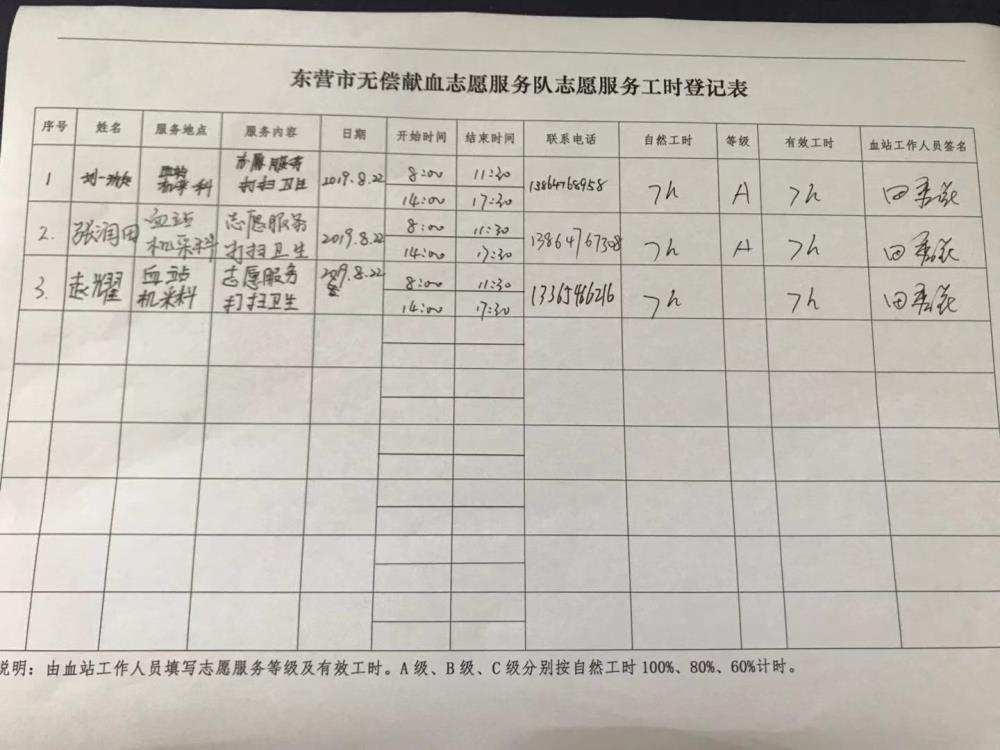 东营市无偿献血志愿服务队志愿服务工时登记表
序号 姓名 服务地点 服务内容 日期 开始时间 结束时间 联系电话 自然工时 等级 有效工时 血站工作人员签名
1 血站 志愿服务 2019.8.22 8:00 11:30 13864768958 7h A 7h
机采科 打扫卫生 14:00 17:30
2. 张润田 血站 志愿服务 2019.8.22 8:00 11:30 13864767308 7h A 7h
机采科 打扫卫生 14:00 17:30
3. 赵耀 血站 志愿服务 2019.8.22 8:00 11:30 13365466216 7h 7h
机采科 打扫卫生 14:00 17:30
说明：由血站工作人员填写志愿服务等级及有效工时。A级、B级、C级分别按自然工时100%、80%、60%计时。